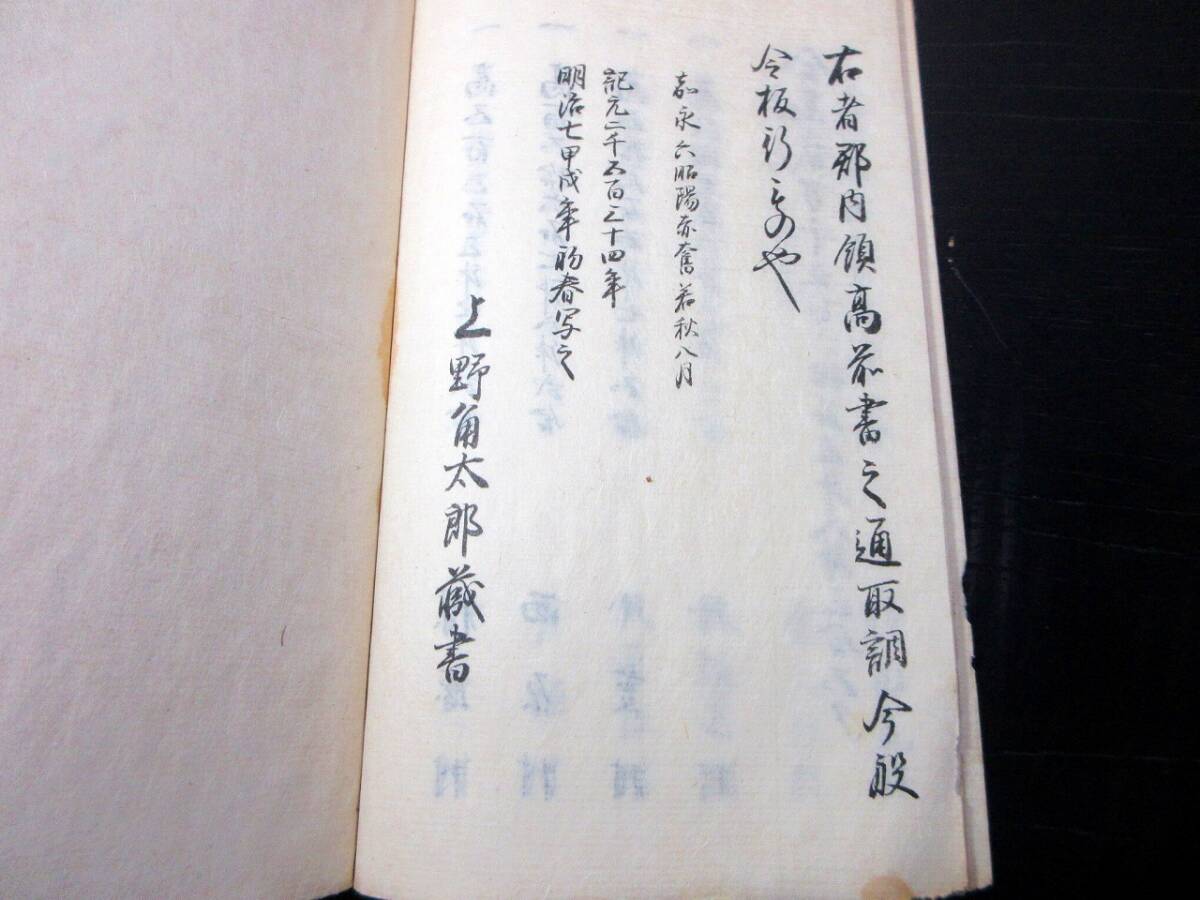 右者郡内領高前書之通取調今般
令板行之ものや
嘉永六昭陽赤奮若秋八月
記元二千五百三十四年
明治七甲戌年初春写之
上野角太郎蔵書